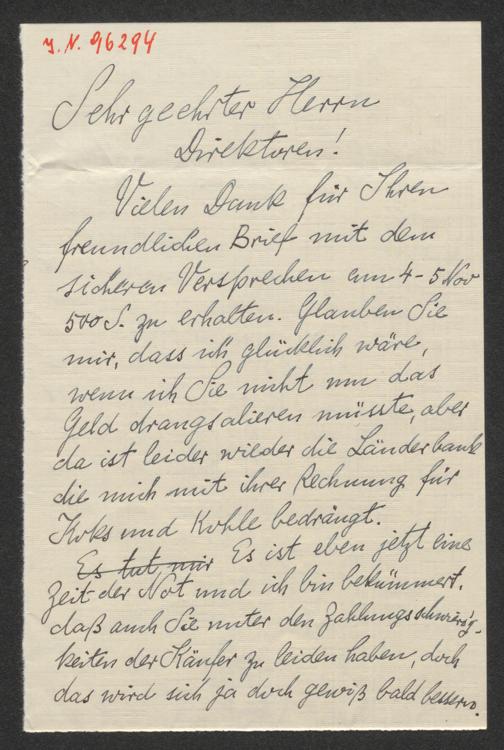 J. N. 96294
Sehr geehrter Herrn
Direktoren!
Vielen Dank für Ihren
freundlichen Brief mit dem
sicheren Versprechen am 4-5 Nov
500 S. zu erhalten. Glauben Sie
mir, dass ich glücklich wäre,
wenn ich Sie nicht um das
Geld drangsalieren müsste, aber
da ist leider wieder die Länderbank
die mich mit ihrer Rechnung für
Koks und Kohle bedrängt.
Es tut mir Es ist eben jetzt eine
Zeit der Not und ich bin bekümmert,
daß auch Sie unter den Zahlungsschwierig-
keiten der Käufer zu leiden haben, doch
das wird sich ja doch gewiß bald bessern.